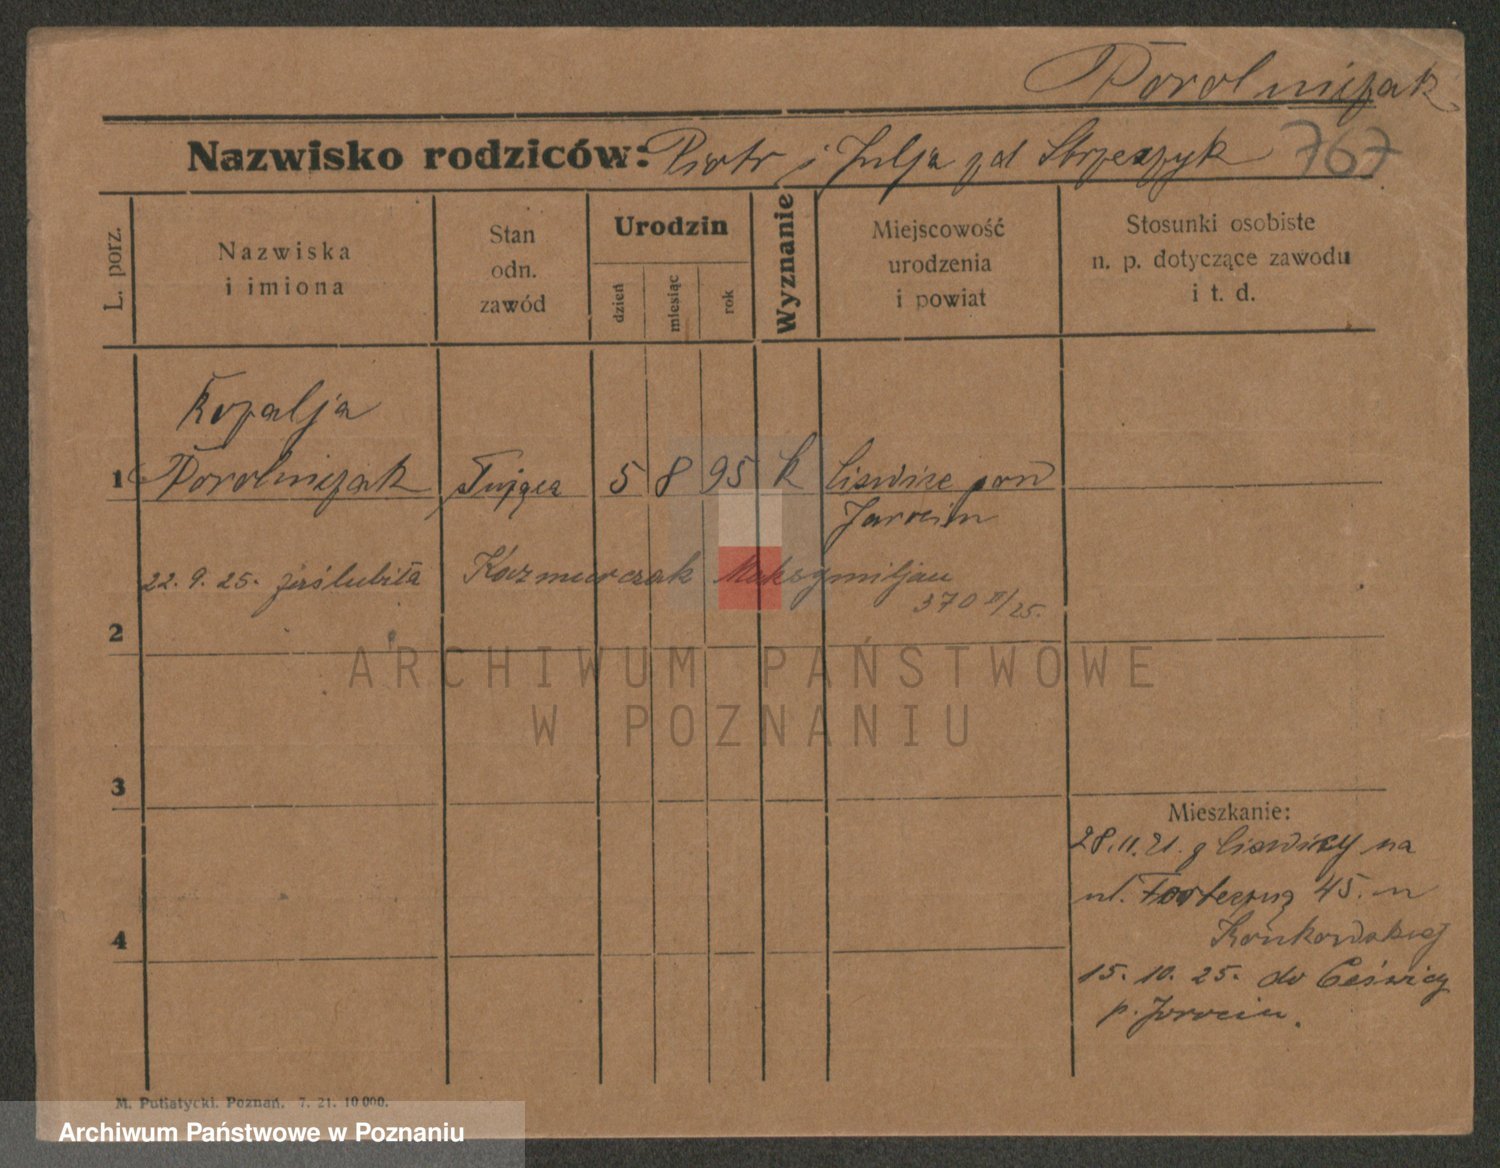 Porolniczak
Nazwisko rodziców: Piotr i Julja zd Strzeszyk
767
L. porz.
Nazwiska
i imiona
Stan
odn.
zawód
Urodzin
dzień
miesiąc
rok
Wyznanie
Miejscowość
urodzenia
i powiat
Stosunki osobiste
n. p. dotyczące zawodu
i t. d.
Rozalja
1 Porolniczak służąca 5 8 95 k pow
Jarocin
22. 9. 25. zaślubiła Kaczmarczak Maksymiljan
370 II/25.
2
ARCHIWUM PAŃSTWOWE
W POZNANIU
3
Mieszkanie:
28.11.21. z na
ul. Forteczną 45. u
4
15. 10. 25. do
p. Jarocin.
M. Putiatycki. Poznań. 7. 21. 10 000.
Archiwum Państwowe w Poznaniu